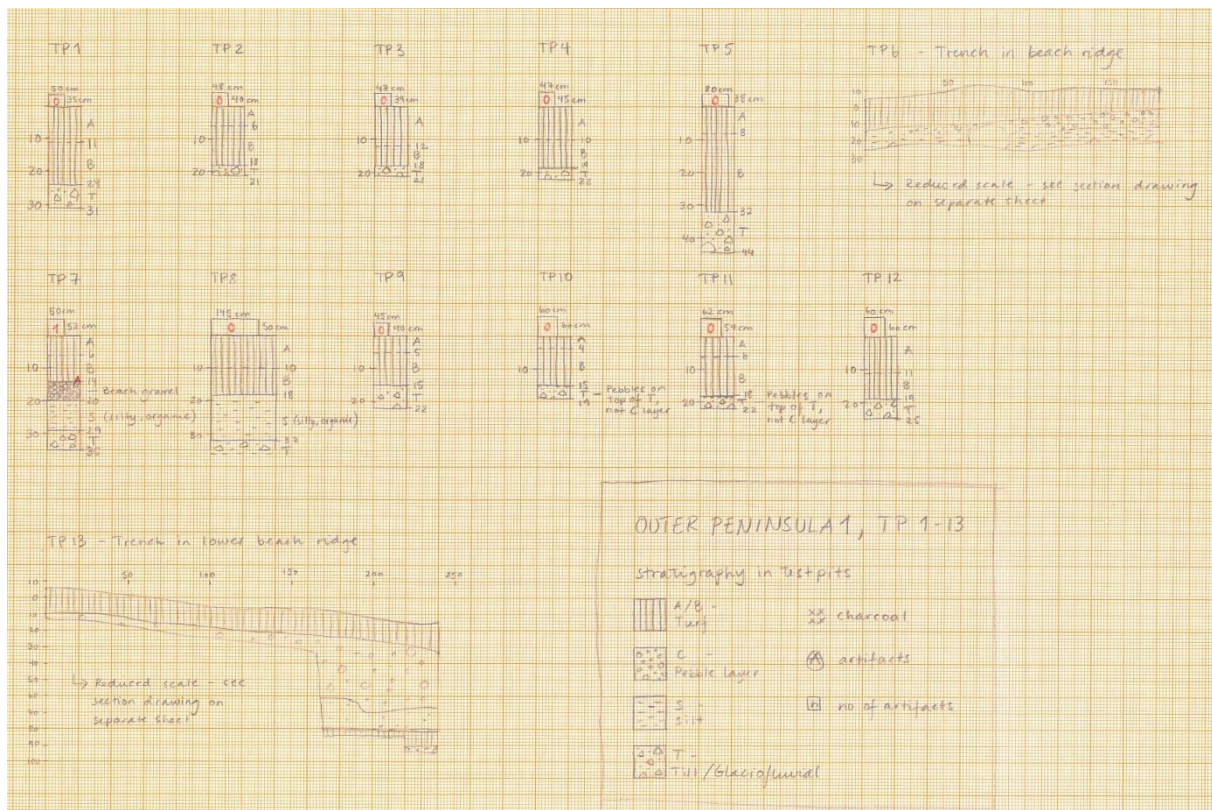 TP1
50cm
0 35cm
A
10
11
B
20
24
T
30
31
TP2
48 cm
0 40 cm
A
6
10
B
18
20
T
21
TP3
47 cm
0 39 cm
A
10
12
B
18
20
T
TP4
47 cm
0 45 cm
A
10
10
B
20
T
22
TP5
80 cm
0 38 cm
A
8
10
20
B
30
32
T
40
44
TP6 - Trench in beach ridge
50
100
150
10
0
10
20
30
↳ Reduced scale - see section drawing
on separate sheet
TP7
50cm
1 52 cm
A
6
10
B
A
14
Beach gravel
20
20
S (silty, organic)
29
30
T
35
TP8
175 cm
0 50 cm
A
10
10
B
18
S (silty, organic)
30
32
T
TP9
45 cm
0 40 cm
A
5
10
B
15
20
T
22
TP10
60 cm
0 60 cm
A
4
10
B
15
T
19
Pebbles on
top of T,
not C layer
TP11
62 cm
0 54 cm
A
6
10
B
18
20
T
22
Pebbles on
top of T,
not C layer
TP12
60 cm
0 60 cm
A
10
11
B
19
20
T
25
TP13 - Trench in lower beach ridge
50
100
150
200
250
10
0
10
20
30
40
50
60
70
80
90
100
↳ Reduced scale - see
section drawing on
separate sheet
OUTER PENINSULA 1, TP 1-13
stratigraphy in Testpits
A/B -
Turf
C -
Pebble layer
S -
Silt
T -
Till/Glaciofluvial
xx
xx charcoal
A artifacts
n no of artifacts